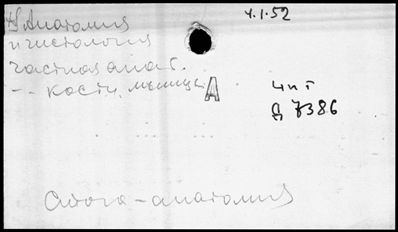 Анатомия
4.1.52
и гистология
частная анат.
-- кости, мышцы
А
чит
Д 7386
анатомия